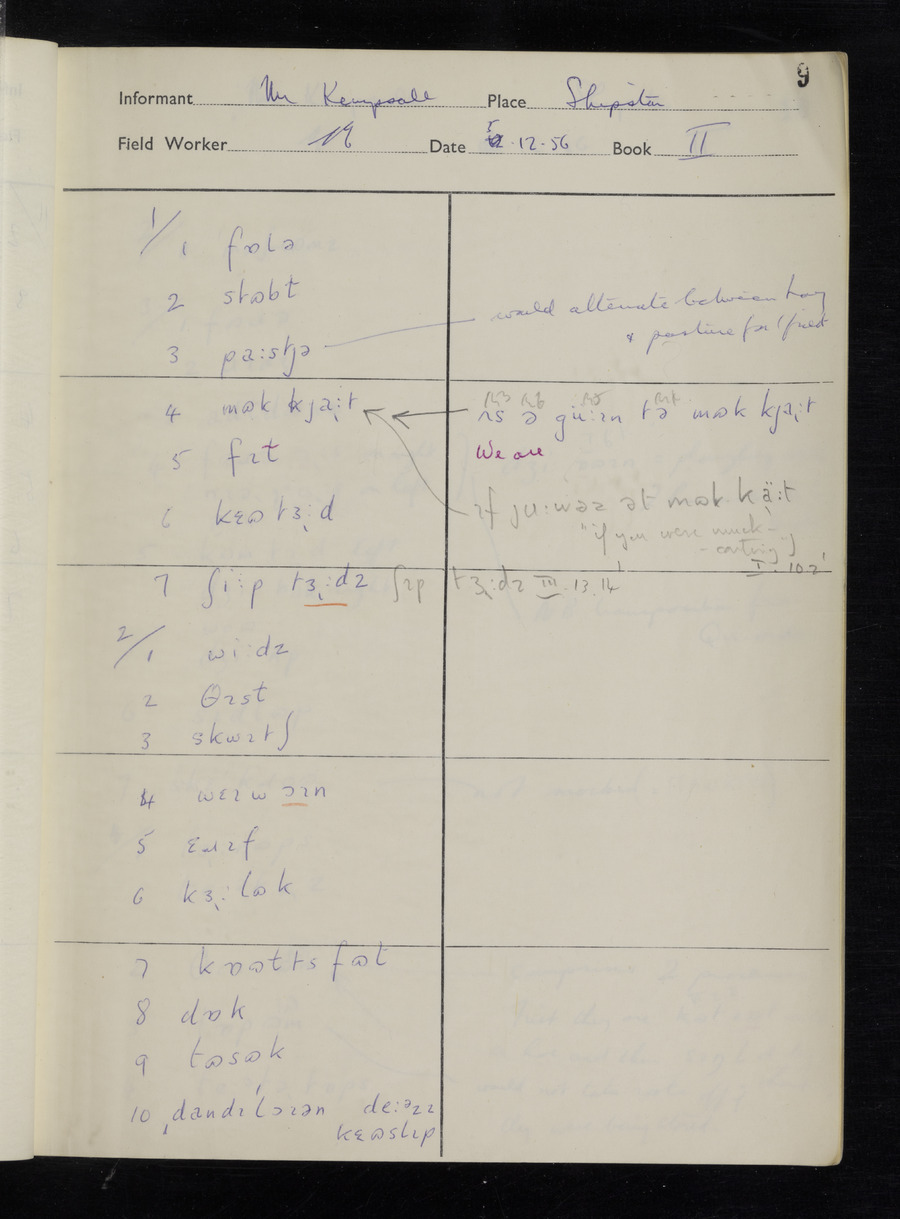 9
Informant Mr Kempsall Place Shipston
Field Worker Date 5.12-56 Book II
1/1 fɒlə
2 stɷbt
3 pa:stʃə would alternate between hay
& pasture for / field
4 mɷk kja̜:t ɪs ə gɯ:ɪn tə mɷk kja̜:t
We are
5 fɪt
if ju:wəɪ ət mɷk kä:t
6 kɛɷ tɜ̜:d "if you were muck-
-carting")
I. 10 2'
7 ʃi:p tɜ̜:dz ʃɪp tɜ̜:dz III. 13.14'
2/1 wi:dz
2 θɪst
3 skwɪtʃ
4 wɛɪwɔɪn
5 ɛɹɪf
6 kɜ̜:lɷk
7 kɒɷtts fɷt
8 dɒk
9 tɷsɷk
10 ˌdandɪˈlɔɪən de:əzɪ
kɛɷslɪp